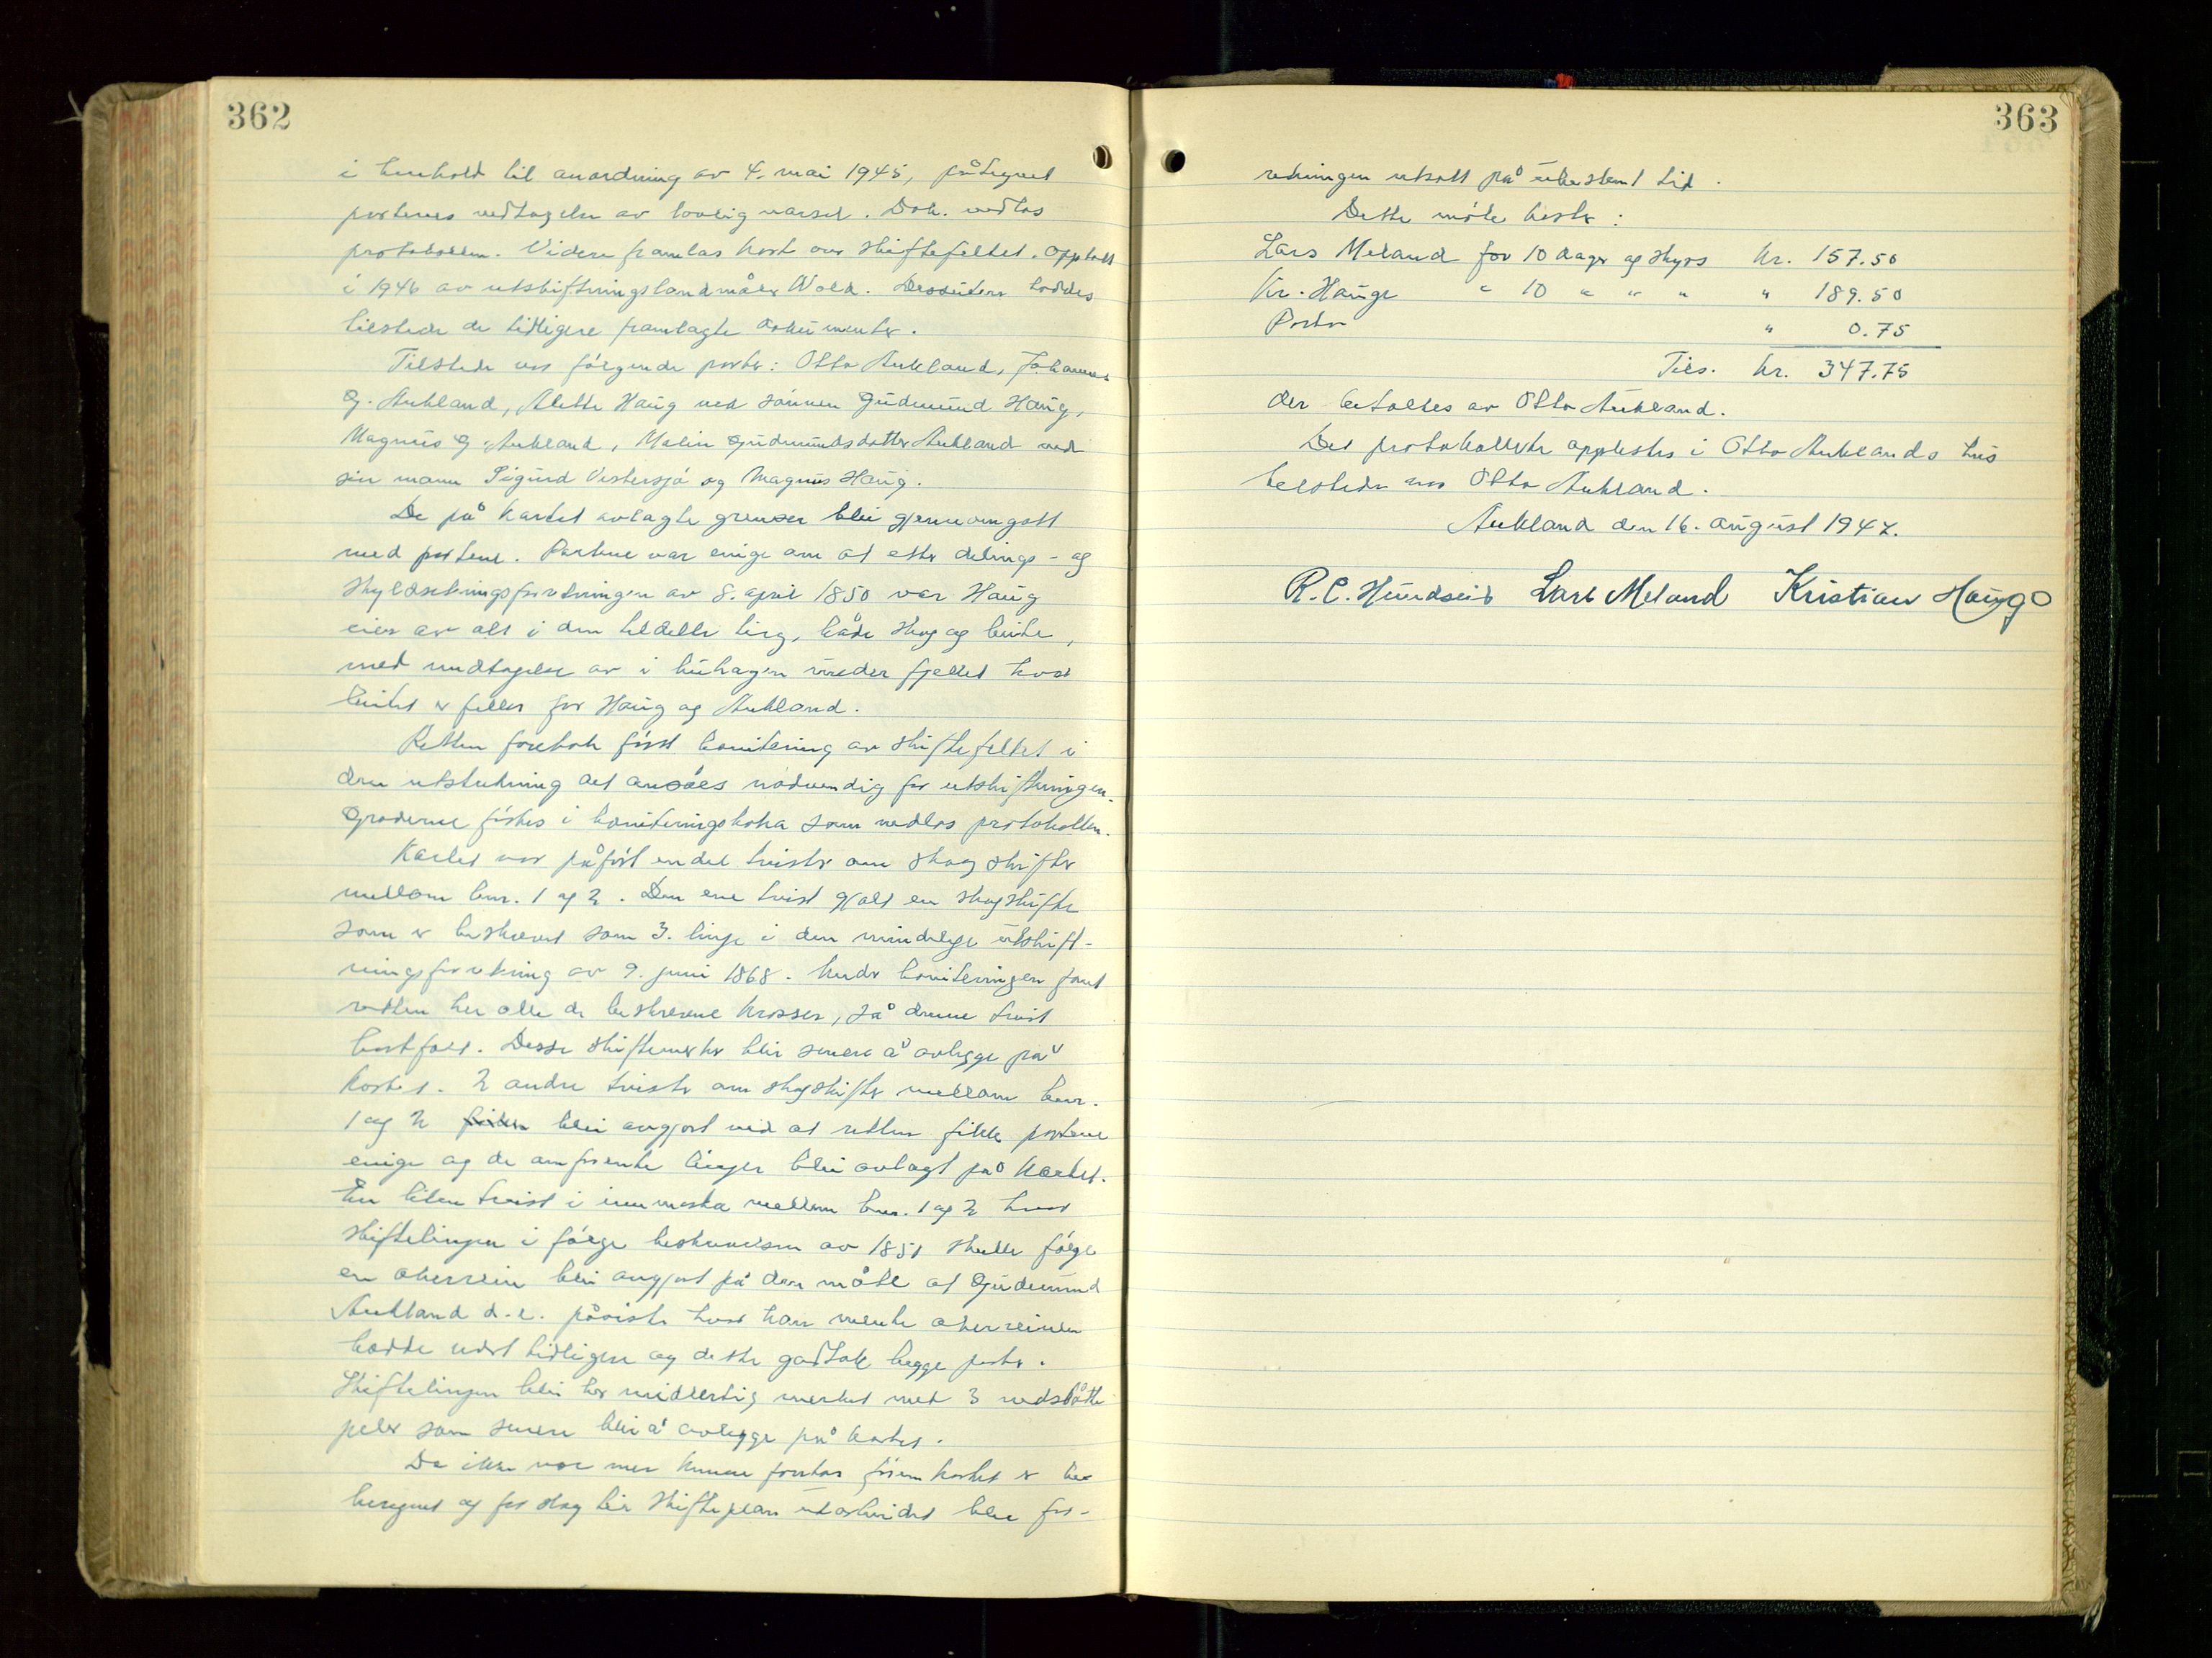 362
i henhold til anordning av 4. mai 1945, påtegnet
partenes vedtagelse av lovlig varsel. Dok. vedlas
protokollen. Videre framlas kart over skiftefeltet. Opptatt
i 1946 av utskiftningslandmåler Wold. Dessuten haddes
tilstede de tidligere framlagte dokumenter.
Tilstede var følgende parter: Otto Aukland, Johannes
G. Aukland, Alette Haug ved sønnen Gudmund Haug,
Magnus G. Aukland, Malin Gudmundsdatter Aukland ved
sin mann Sigurd Vestersjø og Magnus Haug.
De på kartet avlagte grenser blei gjennomgått
med partene. Partene var enige om at etter delings- og
skyldsetningsforretningen av 8. april 1850 var Haug
eier av alt i den tildelte teig, både skog og beite,
med undtagelse av i kuhagen under fjellet hvor
beitet er felles for Haug og Aukland.
Retten foretok først bonitering av skiftefeltet i
den utstrekning det ansåes nødvendig for utskiftningen.
Graderne førtes i boniteringsboka som vedlas protokollen.
Kartet var påført en del tvister om skogskifter
mellom bnr. 1 og 2. Den ene tvist gjalt en skogskifte
som er beskrevet som 3. linje i den mindelige utskift-
ningsforretning av 9. juni 1868. Under boniteringen fant
retten her alle de beskrevne krosser, så denne tvist
bortfalt. Desse skiftemerker blir senere å avlegge på
kartet. 2 andre tvister om skogskifter mellom bnr.
1 og 2 blei avgjort ved at retten fikk partene
enige og de omforente linjer blei avlagt på kartet.
En liten tvist i innmarka mellom bnr. 1 og 2 hvor
skiftelinjen i følge beskrivelsen av 1850 skulle følge
en åkerrein blei avgjort på den måte at Gudmund
Aukland d.e. påviste hvor han mente åkerreinen
hadde vært tidligere og dette godtok begge parter.
Skiftelinjen blei her midlertig merket med 3 nedslåtte
peler som senere blir å avlegge på kartet.
Da ikke var mer kunne foretas førenn kartet er
beregnet og forslag til skifteplan utarbeidet blei for-
363
retningen utsatt på ubestemt tid.
Dette møte koster:
Lars Meland for 10 dager og skyss kr. 157.50
Kr. Hauge " 10 " " " " 189.50
Porto " 0.75
Tils. kr. 347.75
der betaltes av Otto Aukland.
Det protokollerte opplestes i Otto Auklands hus
tilstede var Otto Aukland.
Aukland den 16. august 1947.
R. C. Hundseid Lars Meland Kristian Hauge